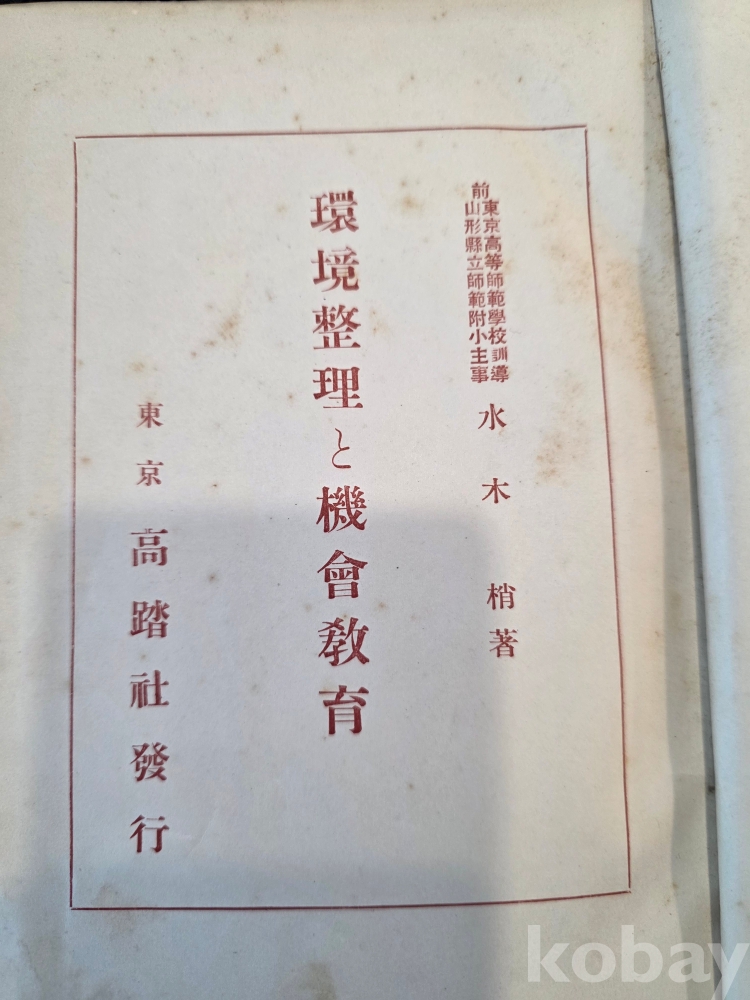 東京高等師範學校訓導
前山形縣立師範附小主事
水木梢著
環境整理と機會敎育
東京 高踏社發行
kobay